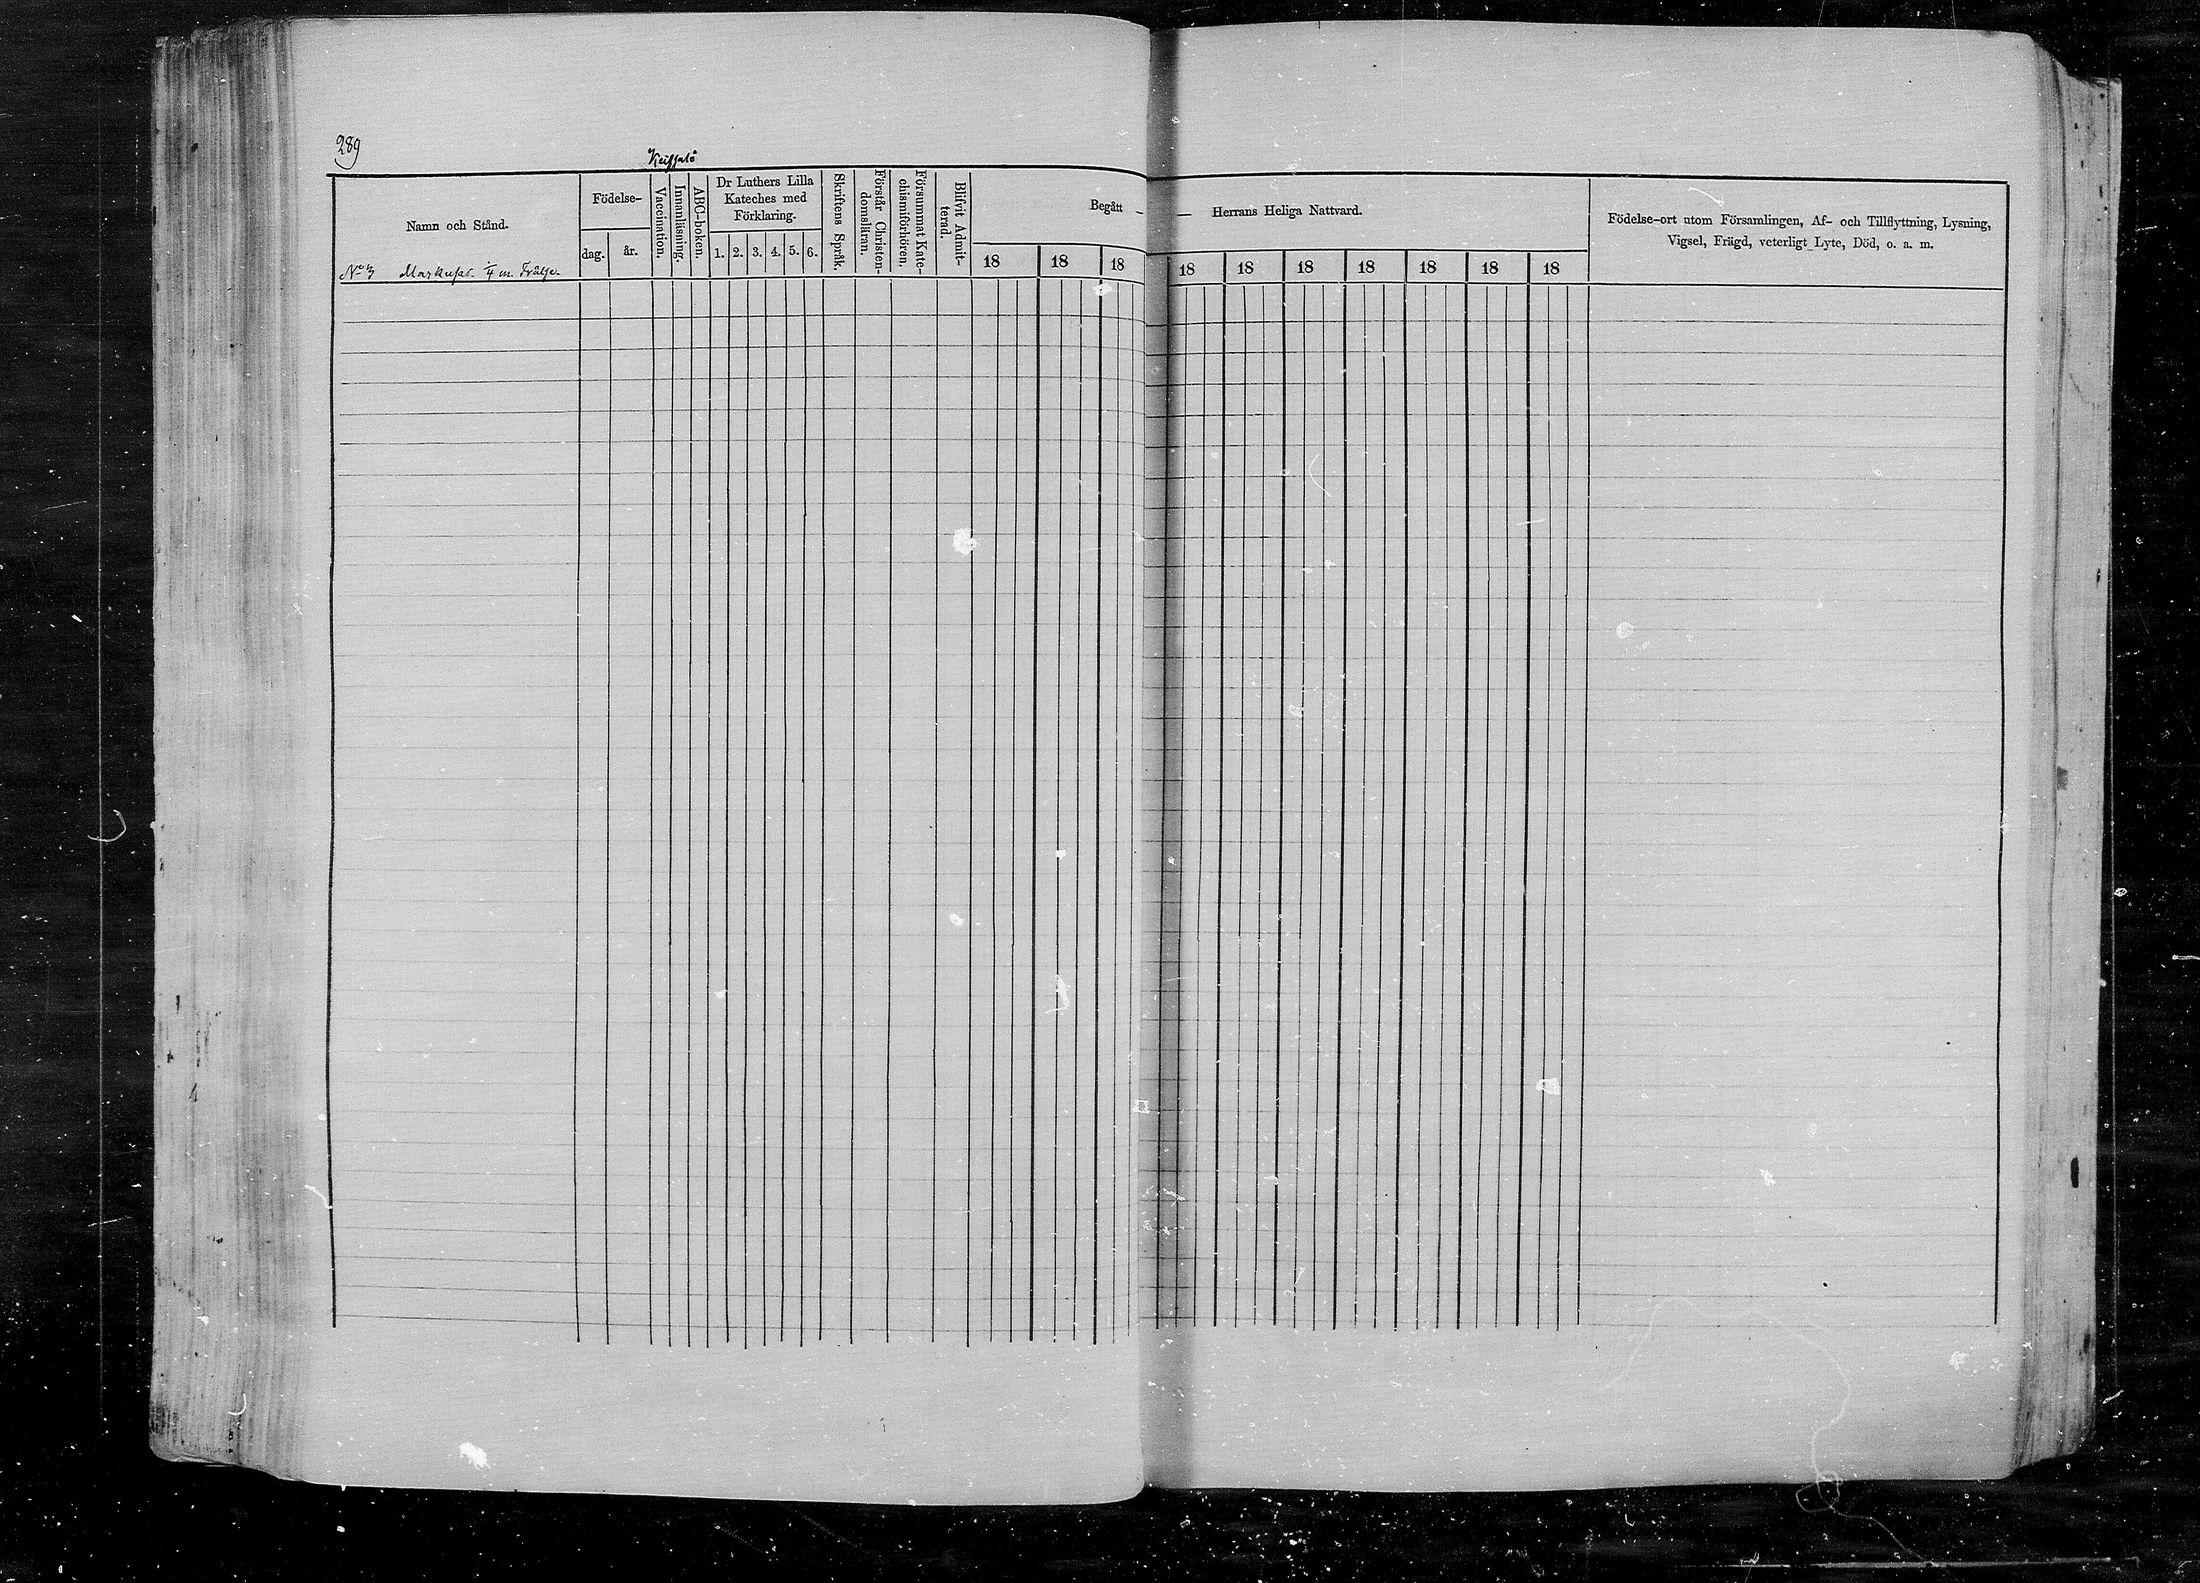 289
Keissalo
Namn och Stånd.
Födelse-
dag.
år.
Vaccination.
Innanläsning.
ABC-boken.
Dr Luthers Lilla
Kateches med
Förklaring.
1. 2. 3. 4. 5. 6.
Skriftens Språk.
Förstår Christen-
domsläran.
Försummat Kate-
chismiförhören.
Blifvit Admit-
terad.
Begått — — Herrans Heliga Nattvard.
18 18 18 18 18 18 18 18 18 18
Födelse-ort utom Församlingen, Af- och Tillflyttning, Lysning,
Vigsel, Frägd, veterligt Lyte, Död, o. a. m.
No 3 m. Frälse.